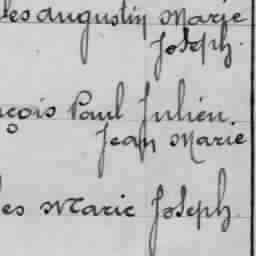 les augustin Marie
Joseph.
çois Paul Julien.
Jean Marie
les Marie Joseph.